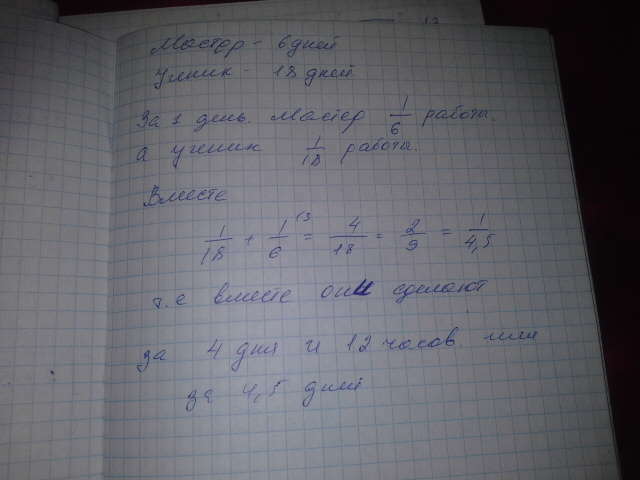 Мастер - 6 дней
Ученик - 18 дней
За 1 день мастер 1/6 работы.
А ученик 1/18 работы.
Вместе
1/18 + 1/6 \3 = 4/18 = 2/9 = 1/4,5
т.е вместе они сделают
за 4 дня и 12 часов. или
за 4,5 дней